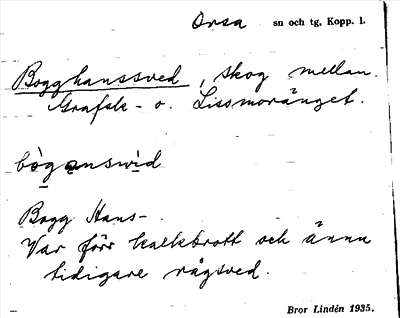 Orsa sn och tg, Kopp. l.
Bogghanssved, skog mellan
Grafsk- o. Lissmoränget.
bòganswid
Bogg Hans-
Var förr kalkbrott och ännu
tidigare rågsved.
Bror Lindén 1935.